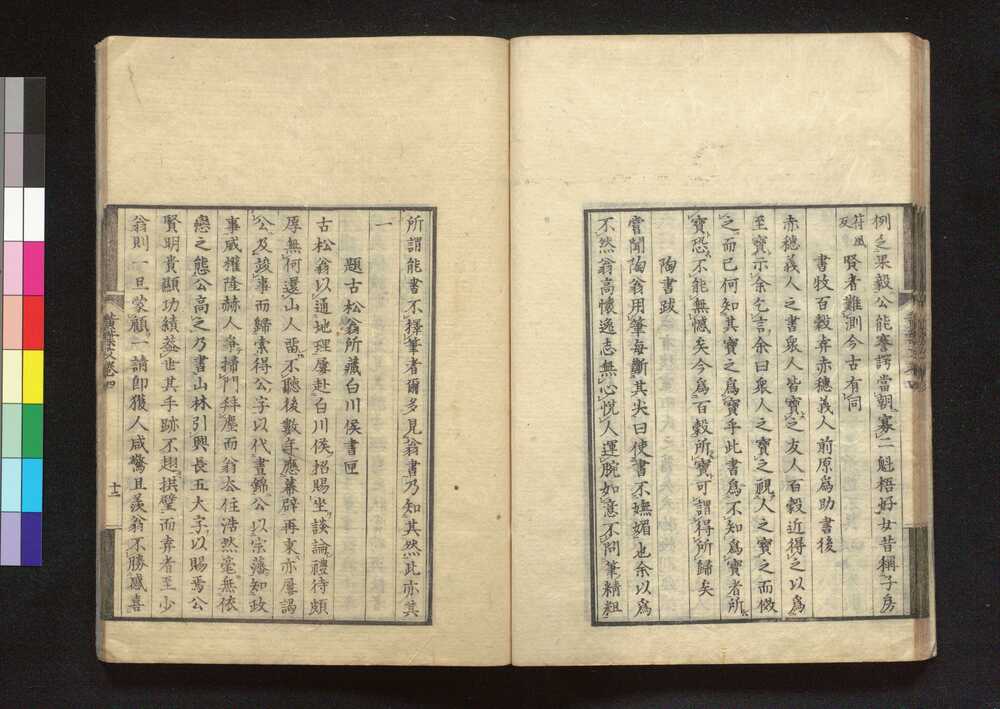 例之果毅公能謇諤當朝寡二魁梧好女昔稱子房
符風反
賢者難測今古有同
書牧百穀弆赤穗義人前原爲助書後
赤穗義人之書衆人皆寶之友人百穀近得之以爲
至寶示余乞言余曰衆人之寶之視人之寶之而倣
之而已何知其寶之爲寶乎此書爲不知爲寶者所
寶恐不能無憾矣今爲百穀所寶可謂得所歸矣
陶書跋
嘗聞陶翁用筆每斷其尖曰使書不嫵媚也余以爲
不然翁高懷逸志無心悅人運腕如意不問筆精粗
所謂能書不擇筆者爾多見翁書乃知其然此亦其
一
題古松翁所藏白川侯書匣
古松翁以通地理屢赴白川侯招賜坐談論禮待頗
厚無何還山人留不聽後數年應幕辟再東亦屢謁
公及竣事而歸索得公字以代晝錦公以宗藩知政
事威權隆赫人爭掃門拜塵而翁去住浩然毫無依
戀之態公高之乃書山林引興長五大字以賜焉公
賢明貴顯功績蓋世其手跡不趐拱璧而弆者至少
翁則一旦蒙顧一請卽獲人咸驚且羨翁不勝感喜
黃葉文卷四
十二